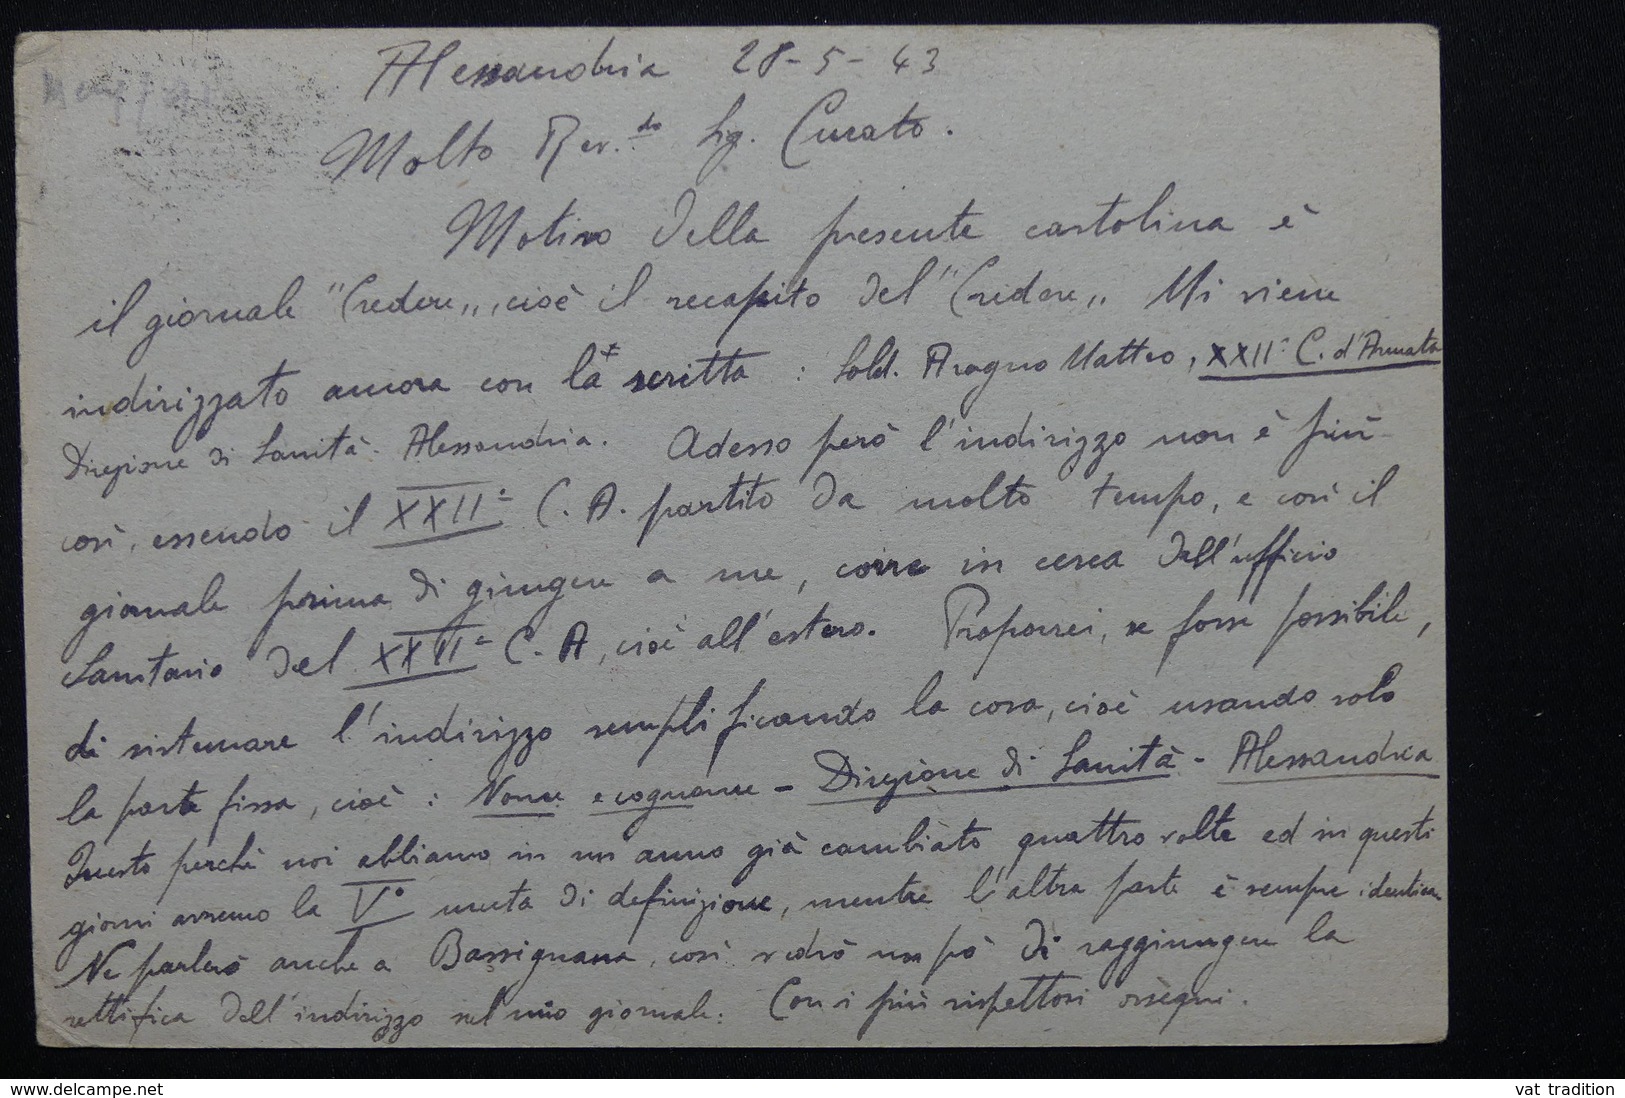 Alessandria 28-5-43
Molto Rev.do Sig. Curato.
Motivo della presente cartolina è
il giornale "Credere,,, cioè il recapito del "Credere,, Mi viene
indirizzato ancora con la scritta : Sold. Aragno Matteo, XXII° C. d'Armata
Direzione di Sanità - Alessandria. Adesso però l'indirizzo non è più
così, essendo il XXII° C. A. partito da molto tempo, e così il
giornale prima di giungere a me, corre in cerca dell'ufficio
Sanitario del XXII° C. A, cioè all'estero. Proporrei, se fosse possibile,
di sistemare l'indirizzo semplificando la cosa, cioè usando solo
la parte fissa, cioè : Nome e cognome - Direzione di Sanità - Alessandria
Questo perchè noi abbiamo in un anno già cambiato quattro volte ed in questi
giorni avremo la V° muta di definizione, mentre l'altra parte è sempre identica
Ne parlerò anche a Bassignana, così vedrò un pò di raggiungere la
rettifica dell'indirizzo sul mio giornale. Con i più rispettosi ossequi.
www.delcampe.net
vat tradition